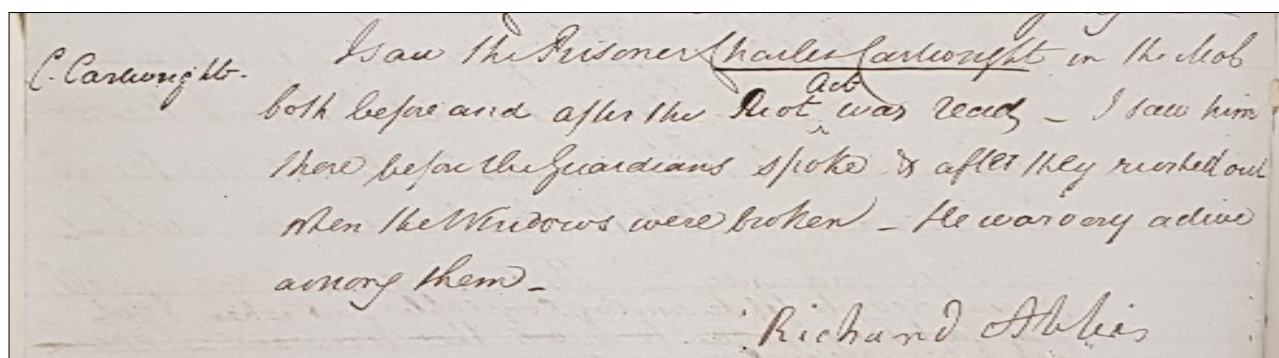 C. Cartwright.
I saw the Prisoner Charles Cartwright in the Mob
both before and after the Riot Act was read – I saw him
there before the Guardians spoke & after they rushed out
when the Windows were broken – He was very active
among them –
Richard Ablies